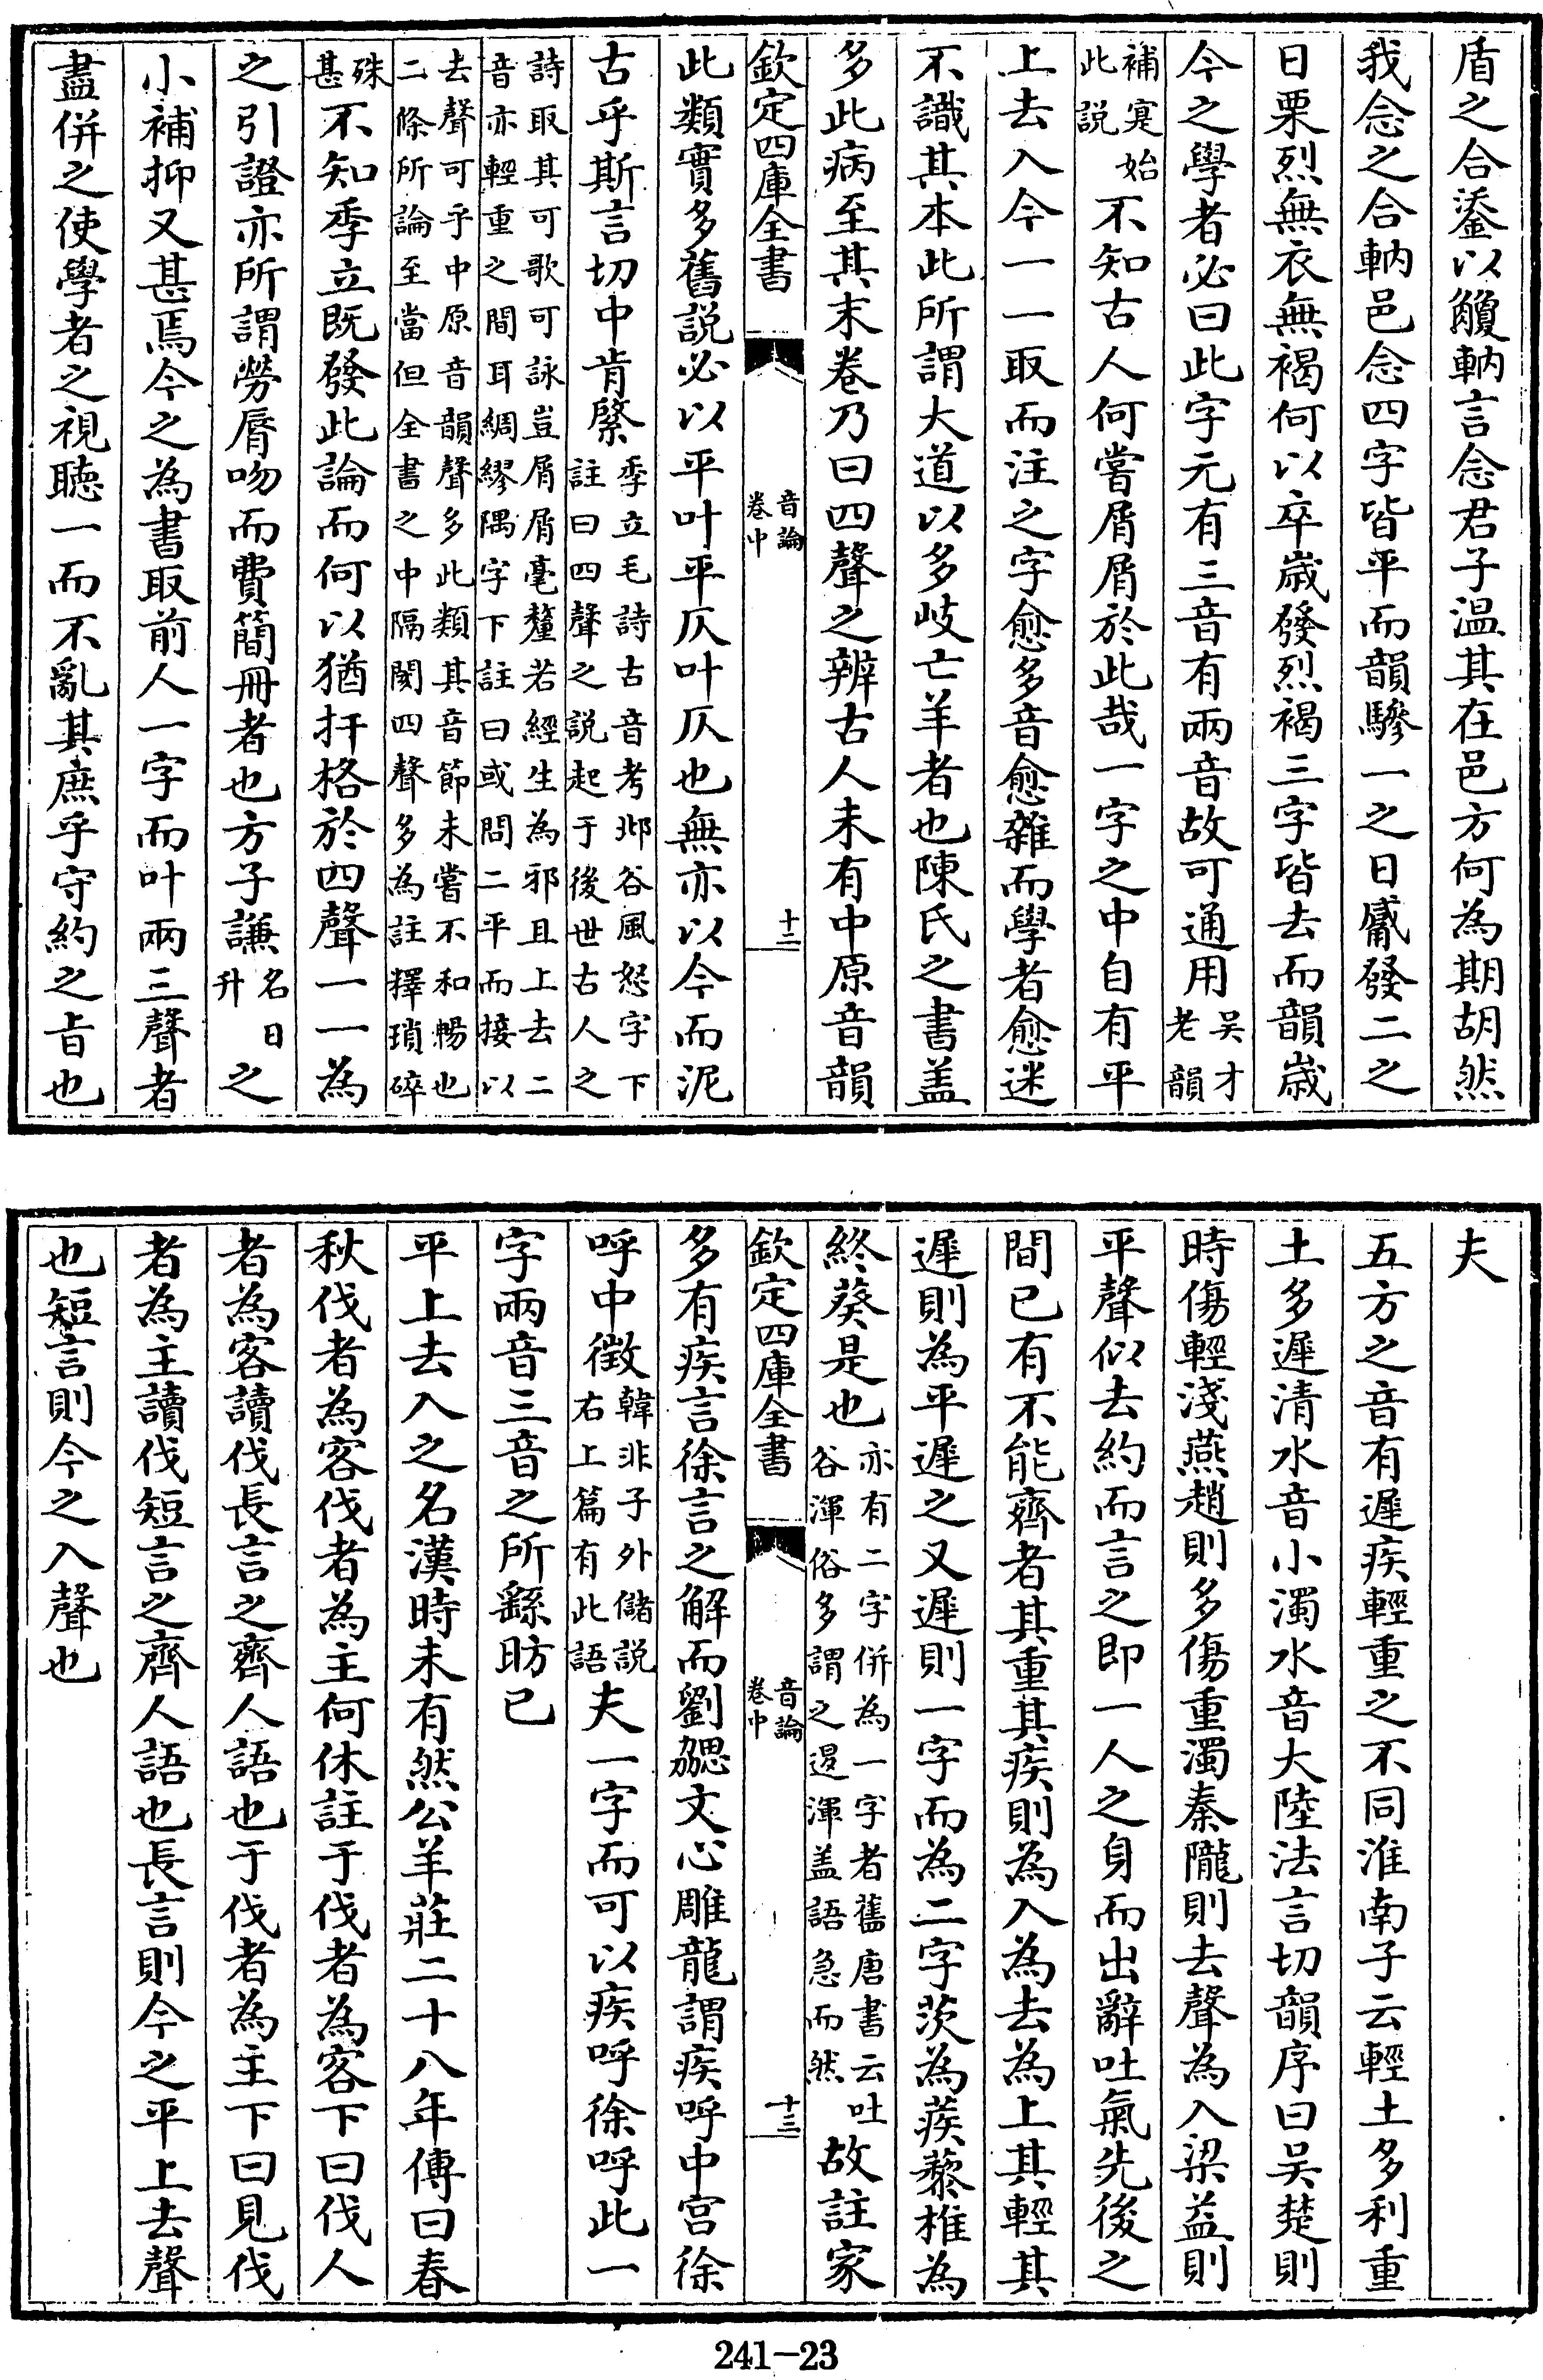 盾之合鋈以觼軜言念君子温其在邑方何為期胡然
我念之合軜邑念四字皆平而韻驂一之日觱發二之
日栗烈無衣無褐何以卒歳發烈褐三字皆去而韻歳
今之學者必曰此字元有三音有兩音故可通用吴才老韻
補寔始此説不知古人何嘗屑屑於此哉一字之中自有平
上去入今一一取而注之字愈多音愈雜而學者愈迷
不識其本此所謂大道以多岐亡羊者也陳氏之書盖
多此病至其末卷乃曰四聲之辨古人未有中原音韻
欽定四庫全書 音論卷中 十二
此類實多舊説必以平叶平仄叶仄也無亦以今而泥
古乎斯言切中肯綮季立毛詩古音考邶谷風怒字下註曰四聲之説起于後世古人之
詩取其可歌可詠豈屑屑毫釐若經生為邪且上去二音亦輕重之間耳綢繆隅字下註曰或問二平而接以
去聲可乎中原音韻聲多此類其音節未嘗不和暢也二條所論至當但全書之中隔閡四聲多為註釋瑣碎
殊甚不知季立既發此論而何以猶扞格於四聲一一為
之引證亦所謂勞脣吻而費簡冊者也方子謙名日升之
小補抑又甚焉今之為書取前人一字而叶兩三聲者
盡併之使學者之視聽一而不亂其庶乎守約之旨也
夫
五方之音有遲疾輕重之不同淮南子云輕土多利重
土多遲清水音小濁水音大陸法言切韻序曰吴楚則
時傷輕淺燕趙則多傷重濁秦隴則去聲為入梁益則
平聲似去約而言之即一人之身而出辭吐氣先後之
間已有不能齊者其重其疾則為入為去為上其輕其
遲則為平遲之又遲則一字而為二字茨為蒺藜椎為
終葵是也亦有二字併為一字者舊唐書云吐谷渾俗多謂之退渾盖語急而然故註家
欽定四庫全書 音論卷中 十三
多有疾言徐言之解而劉勰文心雕龍謂疾呼中宫徐
呼中徵韓非子外儲説右上篇有此語夫一字而可以疾呼徐呼此一
字兩音三音之所繇昉已
平上去入之名漢時未有然公羊莊二十八年傳曰春
秋伐者為客伐者為主何休註于伐者為客下曰伐人
者為客讀伐長言之齊人語也于伐者為主下曰見伐
者為主讀伐短言之齊人語也長言則今之平上去聲
也短言則今之入聲也
241-23